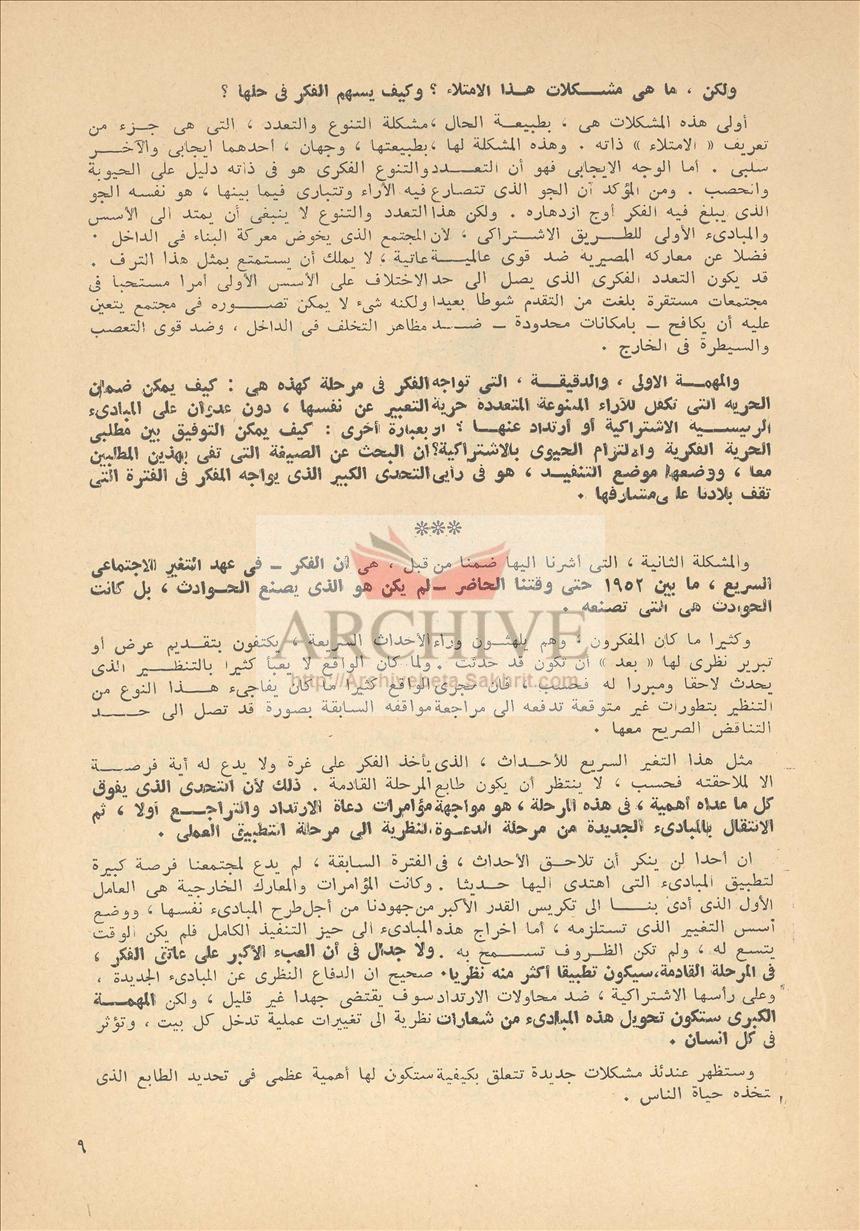 ولكن ، ما هى مشكلات هذا الامتلاء ؟ وكيف يسهم الفكر فى حلها ؟
أولى هذه المشكلات هى ، بطبيعة الحال ، مشكلة التنوع والتعدد ، التى هى جزء من
تعريف « الامتلاء » ذاته . وهذه المشكلة لها ، بطبيعتها ، وجهان ، أحدهما ايجابى والآخر
سلبى . أما الوجه الايجابى فهو أن التعدد والتنوع الفكرى هو فى ذاته دليل على الحيوية
والخصب . ومن المؤكد أن الجو الذى تتصارع فيه الأراء وتتبارى فيما بينها ، هو نفسه الجو
الذى يبلغ فيه الفكر أوج ازدهاره . ولكن هذا التعدد والتنوع لا ينبغى أن يمتد الى الأسس
والمبادىء الأولى للطريق الاشتراكى ، لأن المجتمع الذى يخوض معركة البناء فى الداخل .
فضلا عن معاركه المصيريه ضد قوى عالمية عاتية ، لا يملك أن يستمتع بمثل هذا الترف .
قد يكون التعدد الفكرى الذى يصل الى حد الاختلاف على الأسس الأولى أمرا مستحبا فى
مجتمعات مستقرة بلغت من التقدم شوطا بعيدا ولكنه شىء لا يمكن تصوره فى مجتمع يتعين
عليه أن يكافح – بامكانات محدودة – ضد مظاهر التخلف فى الداخل ، وضد قوى التعصب
والسيطرة فى الخارج .
والمهمة الاولى ، والدقيقة ، التى تواجه الفكر فى مرحلة كهذه هى : كيف يمكن ضمان
الحريه التى تكفل للآراء المتنوعة المتعدده حرية التعبير عن نفسها ، دون عدوان على المبادىء
الرئيسيه الاشتراكية أو ارتداد عنها ؟ او بعبارة أخرى : كيف يمكن التوفيق بين مطلبى
الحرية الفكرية والالتزام الحيوى بالاشتراكية؟ ان البحث عن الصيغة التى تفى بهذين المطلبين
معا ، ووضعها موضع التنفيذ ، هو فى رأيى التحدى الكبير الذى يواجه المفكر فى الفترة التى
تقف بلادنا على مشارفها .
***
والمشكلة الثانية ، التى أشرنا اليها ضمنا من قبل ، هى أن الفكر – فى عهد التغير الاجتماعى
السريع ، ما بين ١٩٥٢ حتى وقتنا الحاضر – لم يكن هو الذى يصنع الحوادث ، بل كانت
الحوادث هى التى تصنعه .
وكثيرا ما كان المفكرون ، وهم يلهثون وراء الأحداث السريعة ، يكتفون بتقديم عرض أو
تبرير نظرى لها « بعد » أن تكون قد حدثت . ولما كان الواقع لا يعبأ كثيرا بالتنظير الذى
يحدث لاحقا ومبررا له فحسب ، فان مجرى الواقع كثيرا ما كان يفاجىء هذا النوع من
التنظير بتطورات غير متوقعة تدفعه الى مراجعة مواقفه السابقة بصورة قد تصل الى حد
التناقض الصريح معها .
مثل هذا التغير السريع للأحداث ، الذى يأخذ الفكر على غرة ولا يدع له أية فرصة
الا لملاحقته فحسب ، لا ينتظر أن يكون طابع المرحلة القادمة . ذلك لأن التحدى الذى يفوق
كل ما عداه أهمية ، فى هذه المرحلة ، هو مواجهة مؤامرات دعاة الارتداد والتراجع أولا ، ثم
الانتقال بالمبادىء الجديدة من مرحلة الدعوة النظرية الى مرحلة التطبيق العملى .
ان أحدا لن ينكر أن تلاحق الأحداث ، فى الفترة السابقة ، لم يدع لمجتمعنا فرصة كبيرة
لتطبيق المبادىء التى اهتدى اليها حديثا . وكانت المؤامرات والمعارك الخارجية هى العامل
الأول الذى أدى بنا الى تكريس القدر الأكبر من جهودنا من أجل طرح المبادىء نفسها ، ووضع
أسس التغيير الذى تستلزمه ، أما اخراج هذه المبادىء الى حيز التنفيذ الكامل فلم يكن الوقت
يتسع له ، ولم تكن الظروف تسمح به . ولا جدال فى أن العبء الأكبر على عاتق الفكر ،
فى المرحلة القادمة، سيكون تطبيقا أكثر منه نظريا. صحيح ان الدفاع النظرى عن المبادىء الجديدة ،
وعلى رأسها الاشتراكية ، ضد محاولات الارتداد سوف يقتضى جهدا غير قليل ، ولكن المهمة
الكبرى ستكون تحويل هذه المبادىء من شعارات نظرية الى تغييرات عملية تدخل كل بيت ، وتؤثر
فى كل انسان .
وستظهر عندئذ مشكلات جديدة تتعلق بكيفية ستكون لها أهمية عظمى فى تحديد الطابع الذى
تتخذه حياة الناس .
٩
ARCHIVE
http://Archivebeta.Sakhrit.com